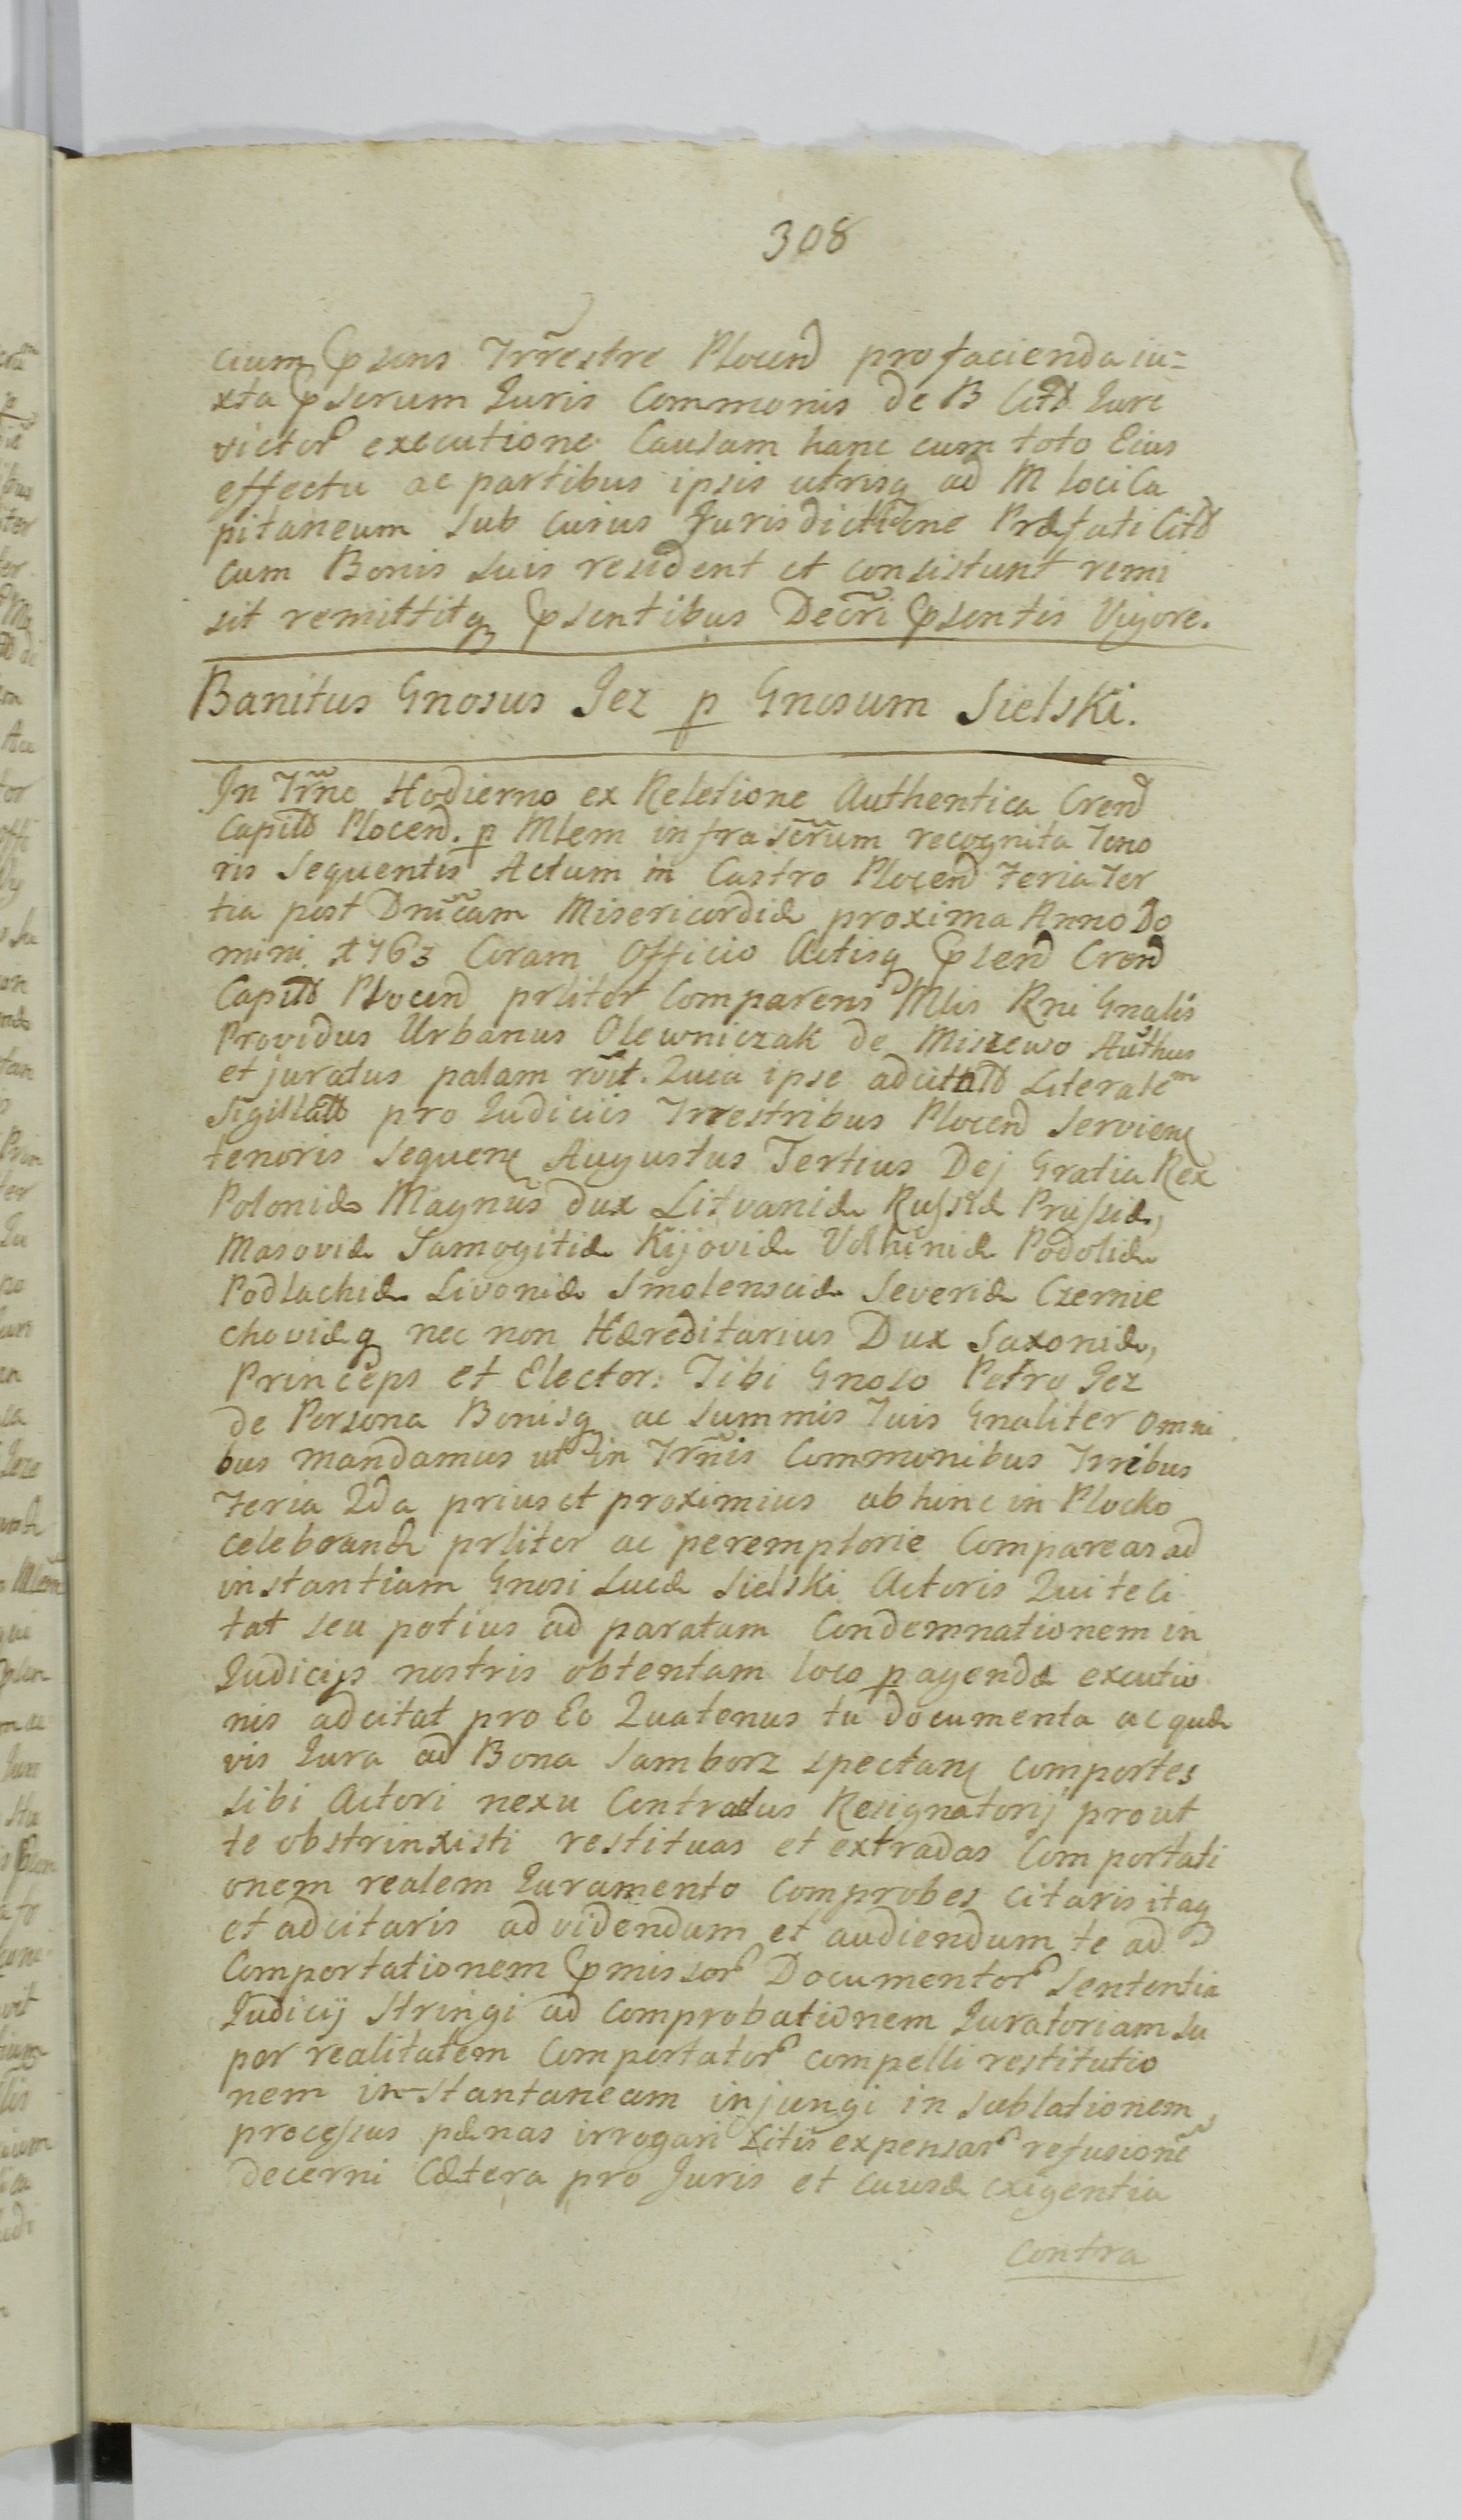 308
cium Psens Trrestre Plocen profacienda iu=
xta Pserum Juris Commonis de B Citt Jure
victor executione Causam hanc cum toto Eius
effectu ac partibus ipsis utrisq ad M Loci Ca
pitaneum sub cuius Jurisdictione Præfati Citt
cum Bonis suis resident et consistunt remi
sit remittitq Psentibus Decri Psentis Vigore.
Banitus Gnosus Jez p Gnosum Sielski.
In Trno Hodierno ex Reletione Authentica Cren
Capitt Plocen. p Mlem infra scrum recognita Teno
ris Sequentis Actum in Castro Plocen Feria Ter
tia post Dnicam Misericordiæ proxima Anno Do
mini 1763 Coram Officio Actisq Psen Cren
Capitt Plocen prliter Comparens Mlis Rni Gnalis
Providus Urbanus Olewniczak de Miszewo Authus
et juratus palam rvit. Quia ipse adcitatt Literalem
Sigillatt pro Judiciis Trrestribus Plocen Servien
tenoris Sequen Augustus Tertius Dej Gratia Rex
Poloniæ Magnus Dux Litvaniæ Russiæ Prussiæ,
Masoviæ Samogitiæ Kijoviæ Volhiniæ Podoliæ
Podlachiæ Livoniæ Smolensciæ Severiæ Czernie
choviæq nec non Hæreditarius Dux Saxoniæ,
Princeps et Elector: Tibi Gnoso Petro Jez
de Persona Bonisq ac summis Tuis Gnaliter omni
bus mandamus ut in Trnis Commonibus Trribus
Feria 2da prius et proximius abhinc in Plocko
celebrand prliter ac peremptorie Compareas ad
instantiam Gnosi Lucæ Sielski Actoris Qui te ci
tat seu potius ad paratam Condemnationem in
Judicijs nostris obtentam loco pagendæ excutio
nis adcitat pro Eo Quatenus tu Documenta ac quæ
vis Jura ad Bona Samborz spectan comportes
sibi Actori nexu Contractus Resignatorij prout
te obstrinxisti restituas et extradas Comportati
onem realem Juramento comprobes citaris itaq
et adcitaris ad videndum et audiendum te ad
Comportationem Pmissor Documentor Sententia
Judicij Stringi ad comprobationem Juratoriam su
per realitatem Comportator compelli restitutio
nem instantaneam injungi in sublationem
processus pænas irrogari Litis expensar refusione
decerni Cætera pro Juris et causæ exigentia
contra